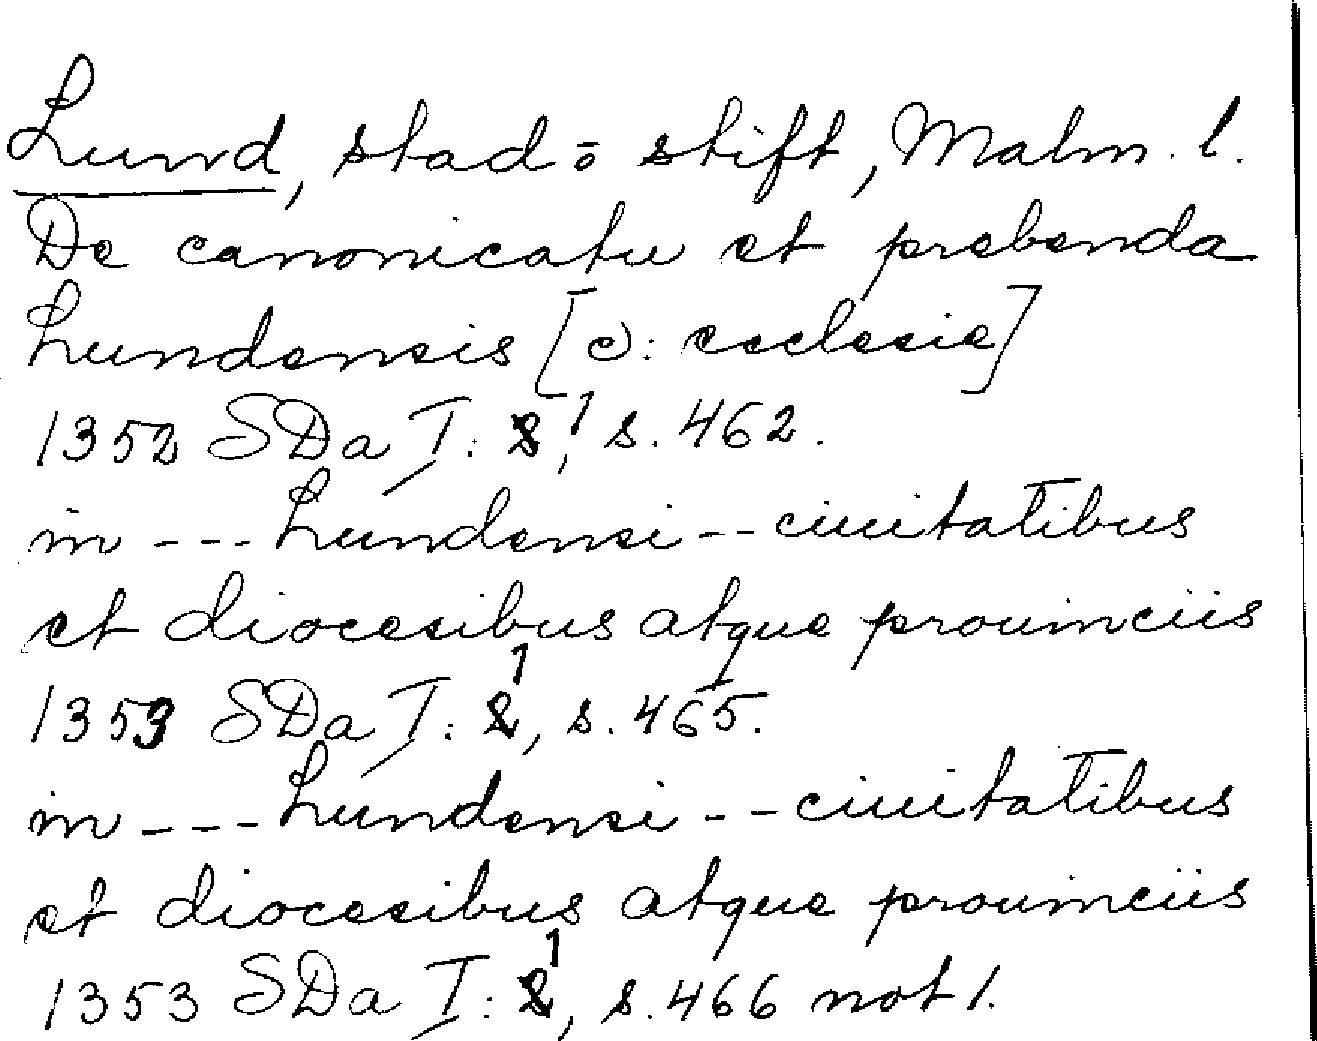 Lund, stad o stift, Malm. l.
De canonicatu et prebenda
Lundensis [ɔ: ecclesie]
1352 SDa I: 1, s. 462.
in --- Lundensi -- ciuitatibus
et diocesibus atque prouinciis
1353 SDa I: 1, s. 465.
in --- Lundensi -- ciuitatibus
et diocesibus atque prouinciis
1353 SDa I: 1, s. 466 not 1.